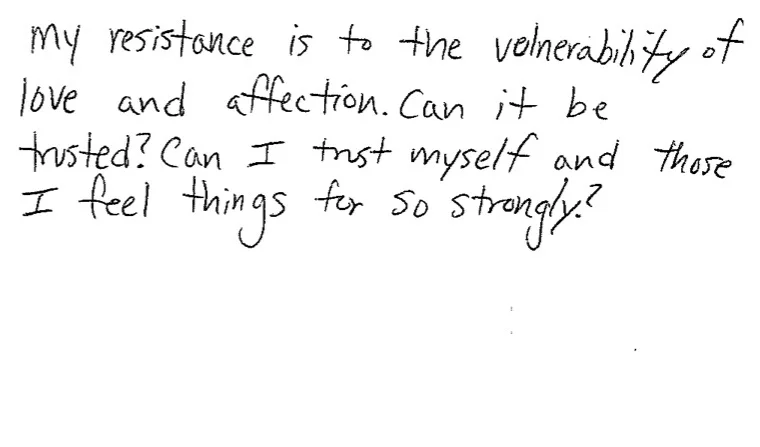 My resistance is to the vulnerability of
love and affection. Can it be
trusted? Can I trust myself and those
I feel things for so strongly?